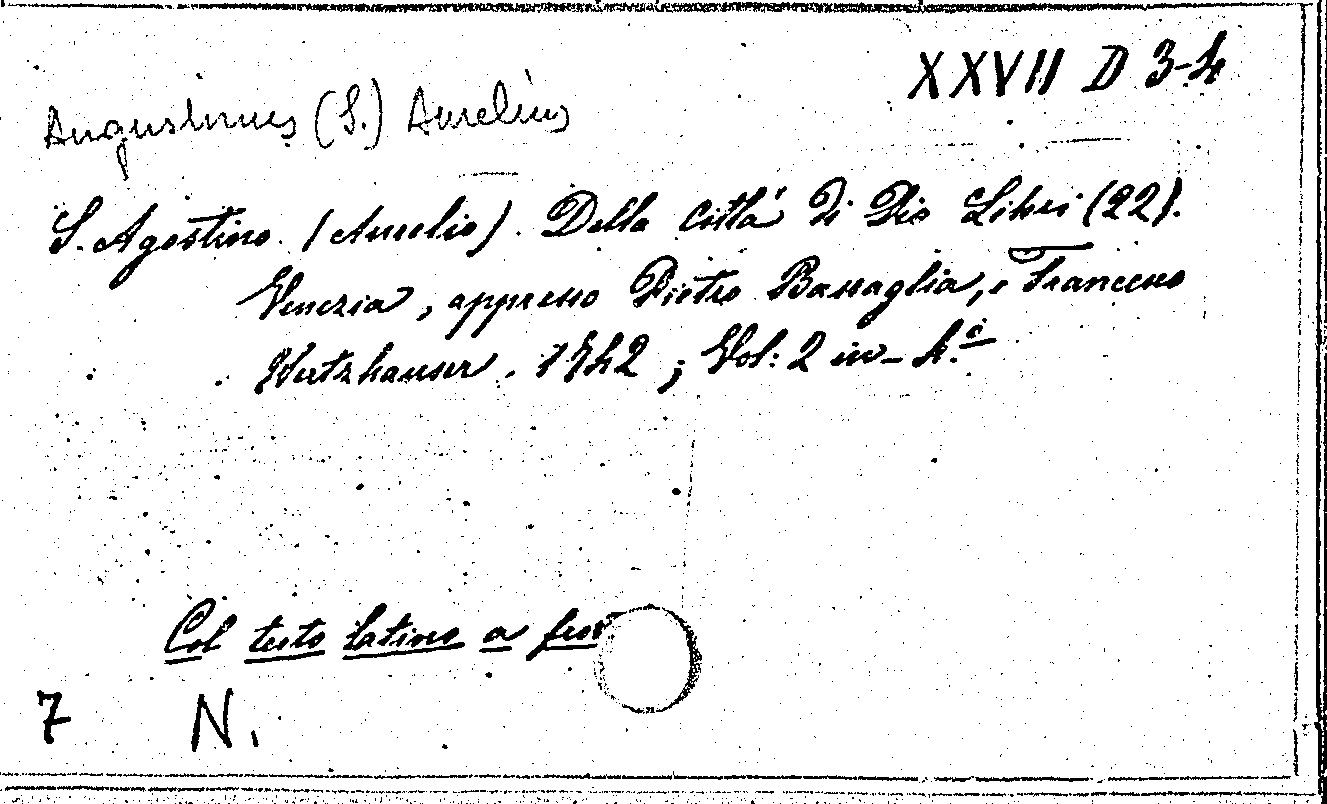 XXVII D 3-4
Augustinus (S.) Aurelius
S. Agostino. (Aurelio). Della Città di Dio Libri (22).
Venezia, appresso Pietro Bassaglia, e Francesco
Hertzhauser. 1742; Vol: 2 in-4.º
Col testo latino a
7 N.